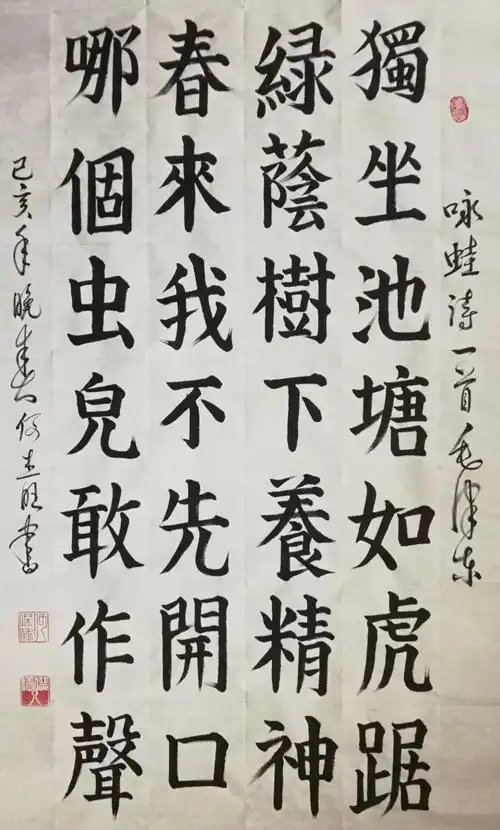 咏蛙诗一首毛泽东
獨坐池塘如虎踞
緑蔭樹下養精神
春來我不先開口
哪個虫皃敢作聲
己亥年晚春何志旺書